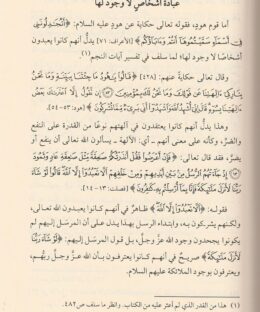 عبادة أشخاص لا وجود لها
أما قوم هود، فقوله تعالى حكاية عن هود عليه السلام: ﴿أَتُجَدِلُونَنِى
فِىٓ أَسْمَآءٍ سَمَّيْتُمُوهَآ أَنتُمْ وَءَابَآؤُكُم﴾ [الأعراف: ٧١] يدل أنهم كانوا يعبدون
أشخاصًا لا وجود لها؛ لما سلف في تفسير آيات النجم(١)
وقال تعالى حكاية عنهم: [٤٢٨] ﴿قَالُوا۟ يَـٰهُودُ مَا جِئْتَنَا بِبَيِّنَةٍ وَمَا نَحْنُ
بِتَارِكِىٓ ءَالِهَتِنَا عَن قَوْلِكَ وَمَا نَحْنُ لَكَ بِمُؤْمِنِينَ ۝ إِن نَّقُولُ إِلَّا ٱعْتَرَىٰكَ بَعْضُ
ءَالِهَتِنَا بِسُوٓءٍ﴾ [هود: ٥٣ - ٥٤].
وهذا يدل أنهم كانوا يعتقدون في آلهتهم نوعًا من القدرة على النفع
والضر، وكأنه على معنى أنهم ـ أي: الآلهة ـ يسألون الله تعالى أن ينفع أو
يضر، فقد قال تعالى: ﴿فَإِنْ أَعْرَضُوا۟ فَقُلْ أَنذَرْتُكُمْ صَـٰعِقَةً مِّثْلَ صَـٰعِقَةِ عَادٍ وَثَمُودَ
۝ إِذْ جَآءَتْهُمُ ٱلرُّسُلُ مِنۢ بَيْنِ أَيْدِيهِمْ وَمِنْ خَلْفِهِمْ أَلَّا تَعْبُدُوٓا۟ إِلَّا ٱللَّهَ قَالُوا۟ لَوْ شَآءَ
رَبُّنَا لَأَنزَلَ مَلَـٰٓئِكَةً فَإِنَّا بِمَآ أُرْسِلْتُم بِهِۦ كَـٰفِرُونَ﴾ [فصلت: ١٣ - ١٤].
فقوله: ﴿أَلَّا تَعْبُدُوٓا۟ إِلَّا ٱللَّهَ﴾ ظاهر في أنهم كانوا يعبدون الله تعالى،
ولكنهم يشركون به، وابتداء الرسل بهذا يدل على أن المرسل إليهم لم
يكونوا يجحدون وجود الله عز وجل، بل قول المرسل إليهم: ﴿لَوْ شَآءَ رَبُّنَا
لَأَنزَلَ مَلَـٰٓئِكَةً﴾ صريح في أنهم كانوا يعترفون بأن الله عز وجل ربهم،
ويعترفون بوجود الملائكة عليهم السلام.
(١) هذا من القدر الذي لم أعثر عليه من الكتاب. وانظر ما سلف ص٤٨٢.